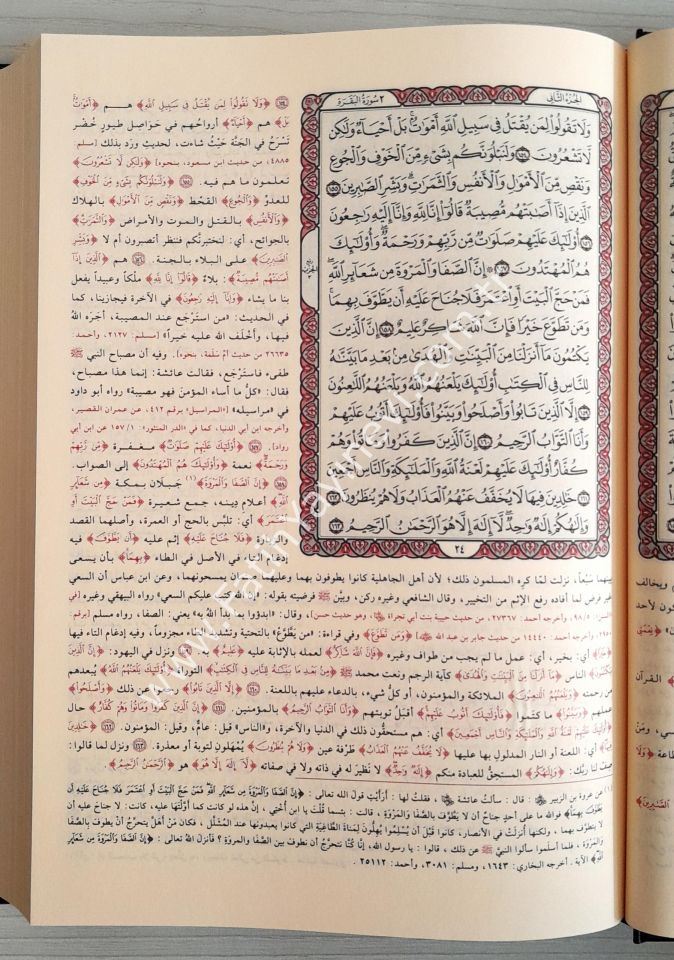 الجزء الثاني
٢ سورة البقرة
وَلَا تَقُولُوا۟ لِمَن يُقْتَلُ فِى سَبِيلِ ٱللَّهِ أَمْوَٰتٌۢ ۚ بَلْ أَحْيَآءٌ وَلَٰكِن
لَّا تَشْعُرُونَ ١٥٤ وَلَنَبْلُوَنَّكُم بِشَىْءٍ مِّنَ ٱلْخَوْفِ وَٱلْجُوعِ
وَنَقْصٍ مِّنَ ٱلْأَمْوَٰلِ وَٱلْأَنفُسِ وَٱلثَّمَرَٰتِ ۗ وَبَشِّرِ ٱلصَّٰبِرِينَ ١٥٥
ٱلَّذِينَ إِذَآ أَصَٰبَتْهُم مُّصِيبَةٌ قَالُوٓا۟ إِنَّا لِلَّهِ وَإِنَّآ إِلَيْهِ رَٰجِعُونَ
١٥٦ أُو۟لَٰٓئِكَ عَلَيْهِمْ صَلَوَٰتٌ مِّن رَّبِّهِمْ وَرَحْمَةٌ ۖ وَأُو۟لَٰٓئِكَ
هُمُ ٱلْمُهْتَدُونَ ١٥٧ ۞ إِنَّ ٱلصَّفَا وَٱلْمَرْوَةَ مِن شَعَآئِرِ ٱللَّهِ ۖ
فَمَنْ حَجَّ ٱلْبَيْتَ أَوِ ٱعْتَمَرَ فَلَا جُنَاحَ عَلَيْهِ أَن يَطَّوَّفَ بِهِمَا ۚ
وَمَن تَطَوَّعَ خَيْرًا فَإِنَّ ٱللَّهَ شَاكِرٌ عَلِيمٌ ١٥٨ إِنَّ ٱلَّذِينَ
يَكْتُمُونَ مَآ أَنزَلْنَا مِنَ ٱلْبَيِّنَٰتِ وَٱلْهُدَىٰ مِنۢ بَعْدِ مَا بَيَّنَّٰهُ
لِلنَّاسِ فِى ٱلْكِتَٰبِ ۙ أُو۟لَٰٓئِكَ يَلْعَنُهُمُ ٱللَّهُ وَيَلْعَنُهُمُ ٱللَّٰعِنُونَ
١٥٩ إِلَّا ٱلَّذِينَ تَابُوا۟ وَأَصْلَحُوا۟ وَبَيَّنُوا۟ فَأُو۟لَٰٓئِكَ أَتُوبُ عَلَيْهِمْ ۚ
وَأَنَا ٱلتَّوَّابُ ٱلرَّحِيمُ ١٦٠ إِنَّ ٱلَّذِينَ كَفَرُوا۟ وَمَاتُوا۟ وَهُمْ
كُفَّارٌ أُو۟لَٰٓئِكَ عَلَيْهِمْ لَعْنَةُ ٱللَّهِ وَٱلْمَلَٰٓئِكَةِ وَٱلنَّاسِ أَجْمَعِينَ
١٦١ خَٰلِدِينَ فِيهَا ۖ لَا يُخَفَّفُ عَنْهُمُ ٱلْعَذَابُ وَلَا هُمْ يُنظَرُونَ ١٦٢
وَإِلَٰهُكُمْ إِلَٰهٌ وَٰحِدٌ ۖ لَّآ إِلَٰهَ إِلَّا هُوَ ٱلرَّحْمَٰنُ ٱلرَّحِيمُ ١٦٣
٢٤
١٥٤ ﴿وَلَا تَقُولُوا لِمَن يُقْتَلُ فِي سَبِيلِ اللَّهِ﴾ هم ﴿أَمْوَاتٌ
بَلْ﴾ هم ﴿أَحْيَاءٌ﴾ أرواحهم في حواصل طيور خُضْر
تَسْرَحُ في الجنَّة حيثُ شاءت، لحديث ورَد بذلك [مسلم:
٤٨٨٥، من حديث ابن مسعود، بنحوه] ﴿وَلَكِن لَّا تَشْعُرُونَ﴾
تعلمون ما هم فيه. ١٥٥ ﴿وَلَنَبْلُوَنَّكُم بِشَيْءٍ مِّنَ الْخَوْفِ﴾
للعدوِّ ﴿وَالْجُوعِ﴾ القحط ﴿وَنَقْصٍ مِّنَ الْأَمْوَالِ﴾ بالهلاك
﴿وَالْأَنفُسِ﴾ بالقتل والموت والأمراض ﴿وَالثَّمَرَاتِ﴾
بالجوائح، أي: لنختبرنَّكم فننظر أتصبرون أم لا ﴿وَبَشِّرِ
الصَّابِرِينَ﴾ على البلاء بالجنة. ١٥٦ هم ﴿الَّذِينَ إِذَا
أَصَابَتْهُم مُّصِيبَةٌ﴾: بلاءٌ ﴿قَالُوا إِنَّا لِلَّهِ﴾ ملكاً وعبيداً يفعل
بنا ما يشاء، ﴿وَإِنَّا إِلَيْهِ رَاجِعُونَ﴾ في الآخرة فيجازينا، كما
في الحديث: «من استَرْجَع عند المصيبة، آجَرَه اللهُ
فيها، وأخلَف الله عليه خيراً» [مسلم: ٢١٢٧، وأحمد:
٢٦٦٣٥ من حديث أمّ سلَمة، بنحوه]. وفيه أن مصباح النبي ﷺ
طفىء فاستَرْجَع، فقالت عائشة: إنما هذا مصباح،
فقال: «كلُّ ما أساء المؤمنَ فهو مصيبة» رواه أبو داود
في «مراسيله» [«المراسيل» برقم ٤١٢، عن عمران القصير،
وأخرجه ابن أبي الدنيا، كما في «الدر المنثور» ١/١٥٧ عن ابن أبي
رواد]. ١٥٧ ﴿أُولَئِكَ عَلَيْهِمْ صَلَوَاتٌ﴾ مغفرة ﴿مِّن رَّبِّهِمْ
وَرَحْمَةٌ﴾ نعمة ﴿وَأُولَئِكَ هُمُ الْمُهْتَدُونَ﴾ إلى الصواب.
١٥٨ ﴿إِنَّ الصَّفَا وَالْمَرْوَةَ﴾(١) جَبلان بمكة ﴿مِن شَعَائِرِ
اللَّهِ﴾ أعلام دِينه، جمع شعيرة ﴿فَمَنْ حَجَّ الْبَيْتَ أَوِ
اعْتَمَرَ﴾ أي: تلبَّس بالحج أو العمرة، وأصلهما القصد
والزيارة ﴿فَلَا جُنَاحَ عَلَيْهِ﴾ إثم عليه ﴿أَن يَطَّوَّفَ﴾ فيه
إدغام التاء في الأصل في الطاء ﴿بِهِمَا﴾ بأن يسعى
بينهما سَبْعاً، نزلت لمّا كره المسلمون ذلك؛ لأن أهل الجاهلية كانوا يطوفون بهما وعليهما صنمان يمسحونهما، وعن ابن عباس أن السعي
غير فرض لما أفاده رفع الإثم من التخيير، وقال الشافعي وغيره ركن، وبيَّن ﷺ فرضيته بقوله: «إن الله كتب عليكم السعي» رواه البيهقي وغيره
وأخرجه أحمد: ٢٧٣٦٧، من حديث حبيبة بنت أبي تجراة وهو حديث حسن]، وقال: «ابدؤوا بما بدأ الله به» يعني: الصفا، رواه مسلم [برقم:
وأخرجه أحمد: ١٤٤٤٠ من حديث جابر بن عبد الله] ﴿وَمَن تَطَوَّعَ﴾ وفي قراءة: «من يطَّوَّعْ» بالتحتية وتشديد الطاء مجزوماً، وفيه إدغام التاء فيها
﴿خَيْرًا﴾ أي: بخير، أي: عمل ما لم يجب من طواف وغيره ﴿فَإِنَّ اللَّهَ شَاكِرٌ﴾ لعمله بالإثابة عليه ﴿عَلِيمٌ﴾ به. ١٥٩ ونزل في اليهود: ﴿إِنَّ الَّذِينَ
يَكْتُمُونَ﴾ الناس ﴿مَا أَنزَلْنَا مِنَ الْبَيِّنَاتِ وَالْهُدَى﴾ كآية الرجم ونعت محمد ﷺ ﴿مِن بَعْدِ مَا بَيَّنَّاهُ لِلنَّاسِ فِي الْكِتَابِ﴾ التوراة ﴿أُولَئِكَ يَلْعَنُهُمُ اللَّهُ﴾ يُبعدهم
من رحمته ﴿وَيَلْعَنُهُمُ اللَّاعِنُونَ﴾ الملائكة والمؤمنون، أو كلُّ شيء، بالدعاء عليهم باللعنة. ١٦٠ ﴿إِلَّا الَّذِينَ تَابُوا﴾ رجعوا عن ذلك ﴿وَأَصْلَحُوا﴾
عملهم ﴿وَبَيَّنُوا﴾ ما كتموا ﴿فَأُولَئِكَ أَتُوبُ عَلَيْهِمْ﴾ أقبَلُ توبتهم ﴿وَأَنَا التَّوَّابُ الرَّحِيمُ﴾ بالمؤمنين. ١٦١ ﴿إِنَّ الَّذِينَ كَفَرُوا وَمَاتُوا وَهُمْ كُفَّارٌ﴾ حال
﴿أُولَئِكَ عَلَيْهِمْ لَعْنَةُ اللَّهِ وَالْمَلَائِكَةِ وَالنَّاسِ أَجْمَعِينَ﴾ أي: هم مستحقُّون ذلك في الدنيا والآخرة، و«الناس» قيل: عامٌّ، وقيل: المؤمنون. ١٦٢ ﴿خَالِدِينَ
فِيهَا﴾ أي: اللعنة أو النار المدلول بها عليها ﴿لَا يُخَفَّفُ عَنْهُمُ الْعَذَابُ﴾ طَرْفة عين ﴿وَلَا هُمْ يُنظَرُونَ﴾ يُمْهَلون لتوبة أو معذرة. ١٦٣ ونزل لما قالوا:
صِفْ لنا ربَّك: ﴿وَإِلَهُكُمْ﴾ المستحِقُّ للعبادة منكم ﴿إِلَهٌ وَاحِدٌ﴾ لا نظير له في ذاته ولا في صفاته ﴿لَا إِلَهَ إِلَّا هُوَ﴾ هو ﴿الرَّحْمَنُ الرَّحِيمُ﴾.
(١) عن عروة بن الزبير قال: سألتُ عائشة، فقلت لها: أرأيتِ قولَ الله تعالى: ﴿إِنَّ الصَّفَا وَالْمَرْوَةَ مِن شَعَائِرِ اللَّهِ فَمَنْ حَجَّ الْبَيْتَ أَوِ اعْتَمَرَ فَلَا جُنَاحَ عَلَيْهِ أَن
يَطَّوَّفَ بِهِمَا﴾ فوالله ما على أحدٍ جناحٌ أن لا يَطَّوَّف بالصَّفا والمروة، قالت: بئسما قلتَ يا ابن أختي، إنَّ هذه لو كانت كما أوَّلْتَها عليه، كانت: لا جناح عليه أن
لا يتطوَّف بهما، ولكنها أُنزلت في الأنصار، كانوا قبل أن يُسلِموا يُهلُّون لمَناةَ الطاغيةِ التي كانوا يعبدونها عند المُشَلَّل، فكان مَن أهلَّ يتحرَّجُ أنْ يطوف بالصَّفا
والمَرْوَة، فلما أسلموا سألوا النبيَّ ﷺ عن ذلك، قالوا: يا رسول الله، إنَّا كنَّا نتحرَّجُ أن نطوف بين الصَّفا والمروة؟ فأنزلَ اللهُ تعالى: ﴿إِنَّ الصَّفَا وَالْمَرْوَةَ مِن شَعَائِرِ
اللَّهِ﴾ الآية. أخرجه البخاري: ١٦٤٣، ومسلم: ٣٠٨١، وأحمد: ٢٥١١٢.